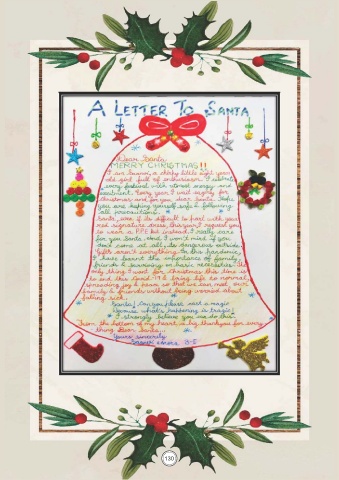 A LETTER TO SANTA
Dear Santa,
MERRY CHRISTMAS!!
I am a chirpy little eight year
old girl full of enthusiasm. I celebrate
every festival with utmost energy and
excitement. Every year I wait eagerly for
Christmas and for you, dear Santa. Hope
you are keeping yourself safe & following
all precautions.
Santa, even if its difficult to part with your
red signature dress, this year I request you
to wear a PPE kit instead. I really care
for you Santa. And I won't mind if you
don't come at all, its dangerous outside.
Life's on everything. In this pandemic,
I have learnt the importance of family,
friends & surviving on basic necessities. The
only thing I want for Christmas this time is
to end this Covid-19 & bring life to normal,
spreading joy & peace so that we can meet our
family & friends without being worried about
falling sick.
Santa! Can you please cast a magic
because what's happening is tragic!
I strongly believe you can do this.
From the bottom of my heart a big thankyou for every
thing dear Santa.
Yours sincerely
3-E
130